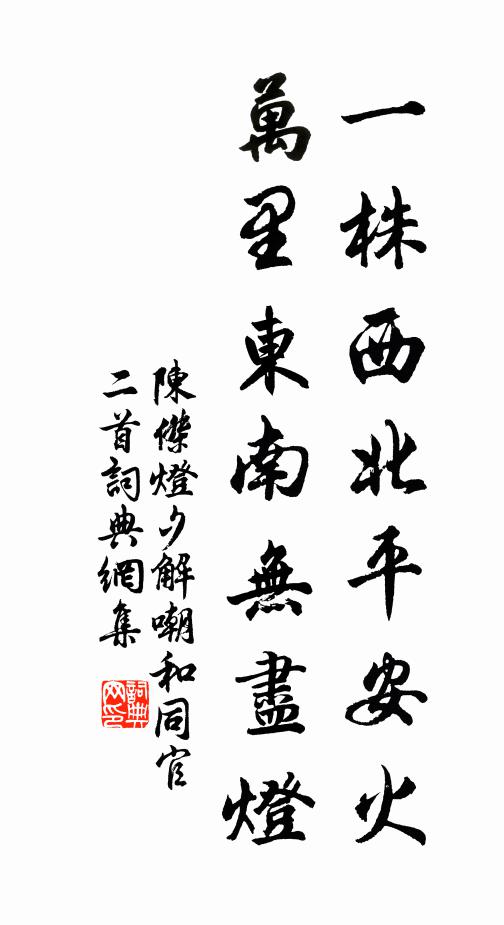 一株西北平安火
萬里東南無盡燈
陳傑燈夕解嘲和同官
二首詞典網集
詞典網印